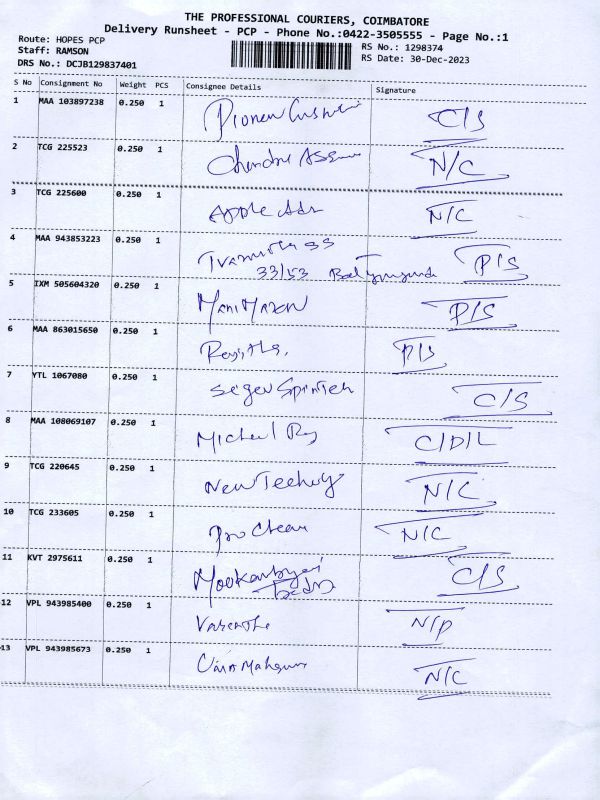 THE PROFESSIONAL COURIERS, COIMBATORE
Delivery Runsheet - PCP - Phone No.:0422-3505555 - Page No.:1
Route: HOPES PCP
Staff: RAMSON
DRS No.: DCJB129837401
RS No.: 1298374
RS Date: 30-Dec-2023
S No Consignment No Weight PCS Consignee Details Signature
1 MAA 103897238 0.250 1 C/S
2 TCG 225523 0.250 1 N/C
3 TCG 225600 0.250 1 Apple N/C
4 MAA 943853223 0.250 1 P/S
33/153
5 IXM 505604320 0.250 1 P/S
6 MAA 863015650 0.250 1 P/S
7 YTL 1067080 0.250 1 C/S
8 MAA 108069107 0.250 1 Micheal C/D/L
9 TCG 220645 0.250 1 New N/C
10 TCG 233605 0.250 1 Pro N/C
11 KVT 2975611 0.250 1 C/S
12 VPL 943985400 0.250 1 N/P
13 VPL 943985673 0.250 1 N/C